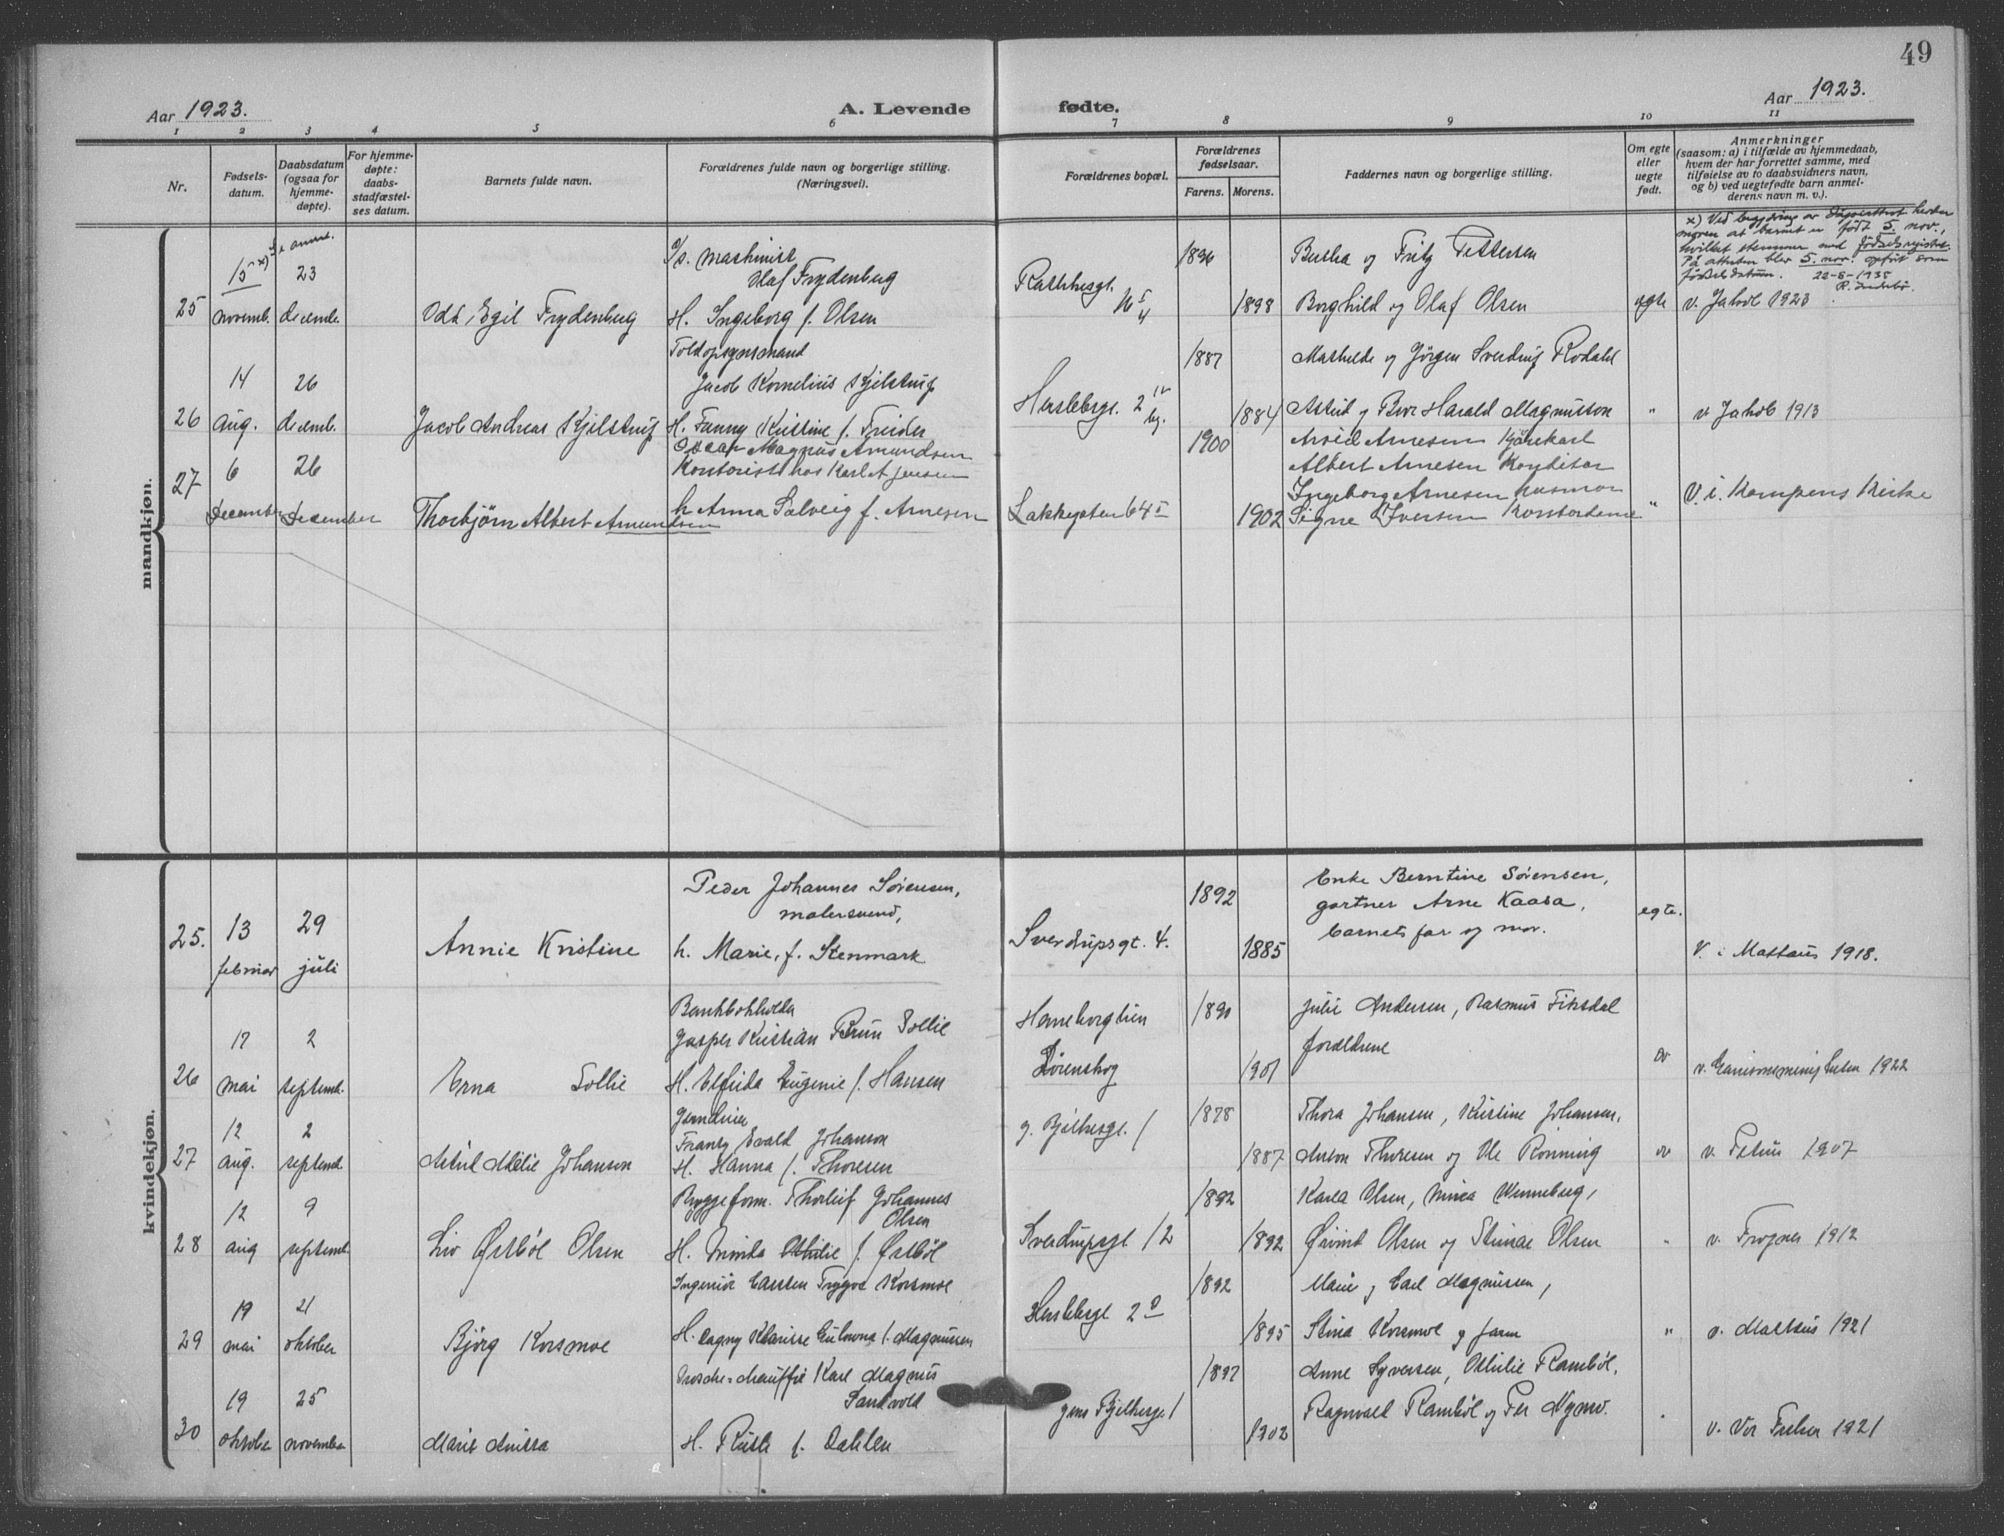 49
Aar 1923.
A. Levende fødte.
Aar 1923.
1 2 3 4 5 6 7 8 9 10 11
Nr.
Fødsels-
datum.
Daabsdatum
(ogsaa for
hjemme-
døpte).
For hjemme-
døpte:
daabs-
stadfæstel-
ses datum.
Barnets fulde navn.
Forældrenes fulde navn og borgerlige stilling.
(Næringsvei).
Forældrenes bopæl.
Forældrenes
fødselsaar.
Farens. Morens.
Faddernes navn og borgerlige stilling.
Om egte
eller
uegte
født.
Anmerkninger
(saasom: a) i tilfælde av hjemmedaab,
hvem der har forrettet samme, med
tilføielse av to daabsvidners navn,
og b) ved uegtefødte barn anmel-
derens navn m. v.).
mandkjøn.
x) Ved av
moren at barnet er født 5. nov.,
hvilket stemmer med fødselsregistret
På attesten blev 5. nov. opført som
fødselsdatum. 22-8-1935
25
15 x)
novemb.
23
decemb.
Odd Egil Frydenberg
maskinist
Olaf Frydenberg
H. Ingeborg f. Olsen
1896
1898
Bertha og Fritz Pettersen
Borghild og Olaf Olsen
egte
v. Jakob 1923
26
14
aug.
26
decemb.
Jacob Andreas Kjelstrup
Toldopsynsmand
Jacob Kornelius Kjelstrup
H. Fanny Kristine f.
Herslebsgt. 2
1887
1884
Mathilde og Jørgen Sverdrup Rodahl
Astrid og Harald Magnusson
"
v. Jakob 1913
27
6
December
26
December
Thorbjørn Albert Amundsen
Oscar Magnus Amundsen
Kontorist hos Karl A Jensen
h Anna Solveig f. Arnesen
Lakkegaten 64 I
1900
1902
Arvid Arnesen Kjørekarl
Albert Arnesen Konditor
Ingeborg Arnesen husmor
Signe Iversen Kontordame
"
V. i. Kampens Kirke
kvindekjøn.
25.
13
februar
29
juli
Annie Kristine
Peder Johannes Sørensen,
malersvend,
h. Marie, f. Stenmark
Sverdrupsgt. 4.
1892
1885
Enke Berntine Sørensen,
gartner Arne Kaasa,
barnets far og mor.
egte.
V. i Mattæus 1918.
26
17
mai
2
septemb.
Erna Sollie
Bankbokholder
Jasper Kristian Brun Sollie
H. Elfrida Eugenie f. Hansen
Lørenskog
1890
1901
Julie Andersen, Rasmus Fiksdal
forældrene
v. 1922
27
12
aug.
2
septemb.
Astrid Mélie Johanson
Frantz Evald Johanson
H. Hanna f. Thoresen
g. Bjelkesgt. 1
1878
1887
Thora Johansen, Kristine Johansen,
Anton Thoresen og Ole Rønning
v. Petrus 1907
28
12
aug
9
septemb.
Liv Østbøl Olsen
Byggeform. Thorleif Johannes
Olsen
H. Minda Othilie f. Østbøl
Sverdrupsgt 12
1892
1892
Karla Olsen, Mirea Wenneberg,
Øivind Olsen og Steinar Olsen
"
v. Frogner 1912
29
19
mai
21
oktober
Bjørg Korsmoe
Ingeniør Carsten Trygve Korsmoe
H. Dagny Klarisse Gulowna f. Magnussen
Herslebsgt 2
1892
1895
Marie og Carl Magnussen,
Stina Korsmoe og faren
"
v. Matteus 1921
30
19
oktober
25
november
Marie Anissa
Droschechauffør Karl Magnus
Sandvold
H. Ruth f. Dahlen
jens Bjelkesgt 1
1897
1902
Anne Syversen, Othilie Rambøl,
Ragnvald Rambøl og Per Nymo.
"
v. Vor Frelser 1921